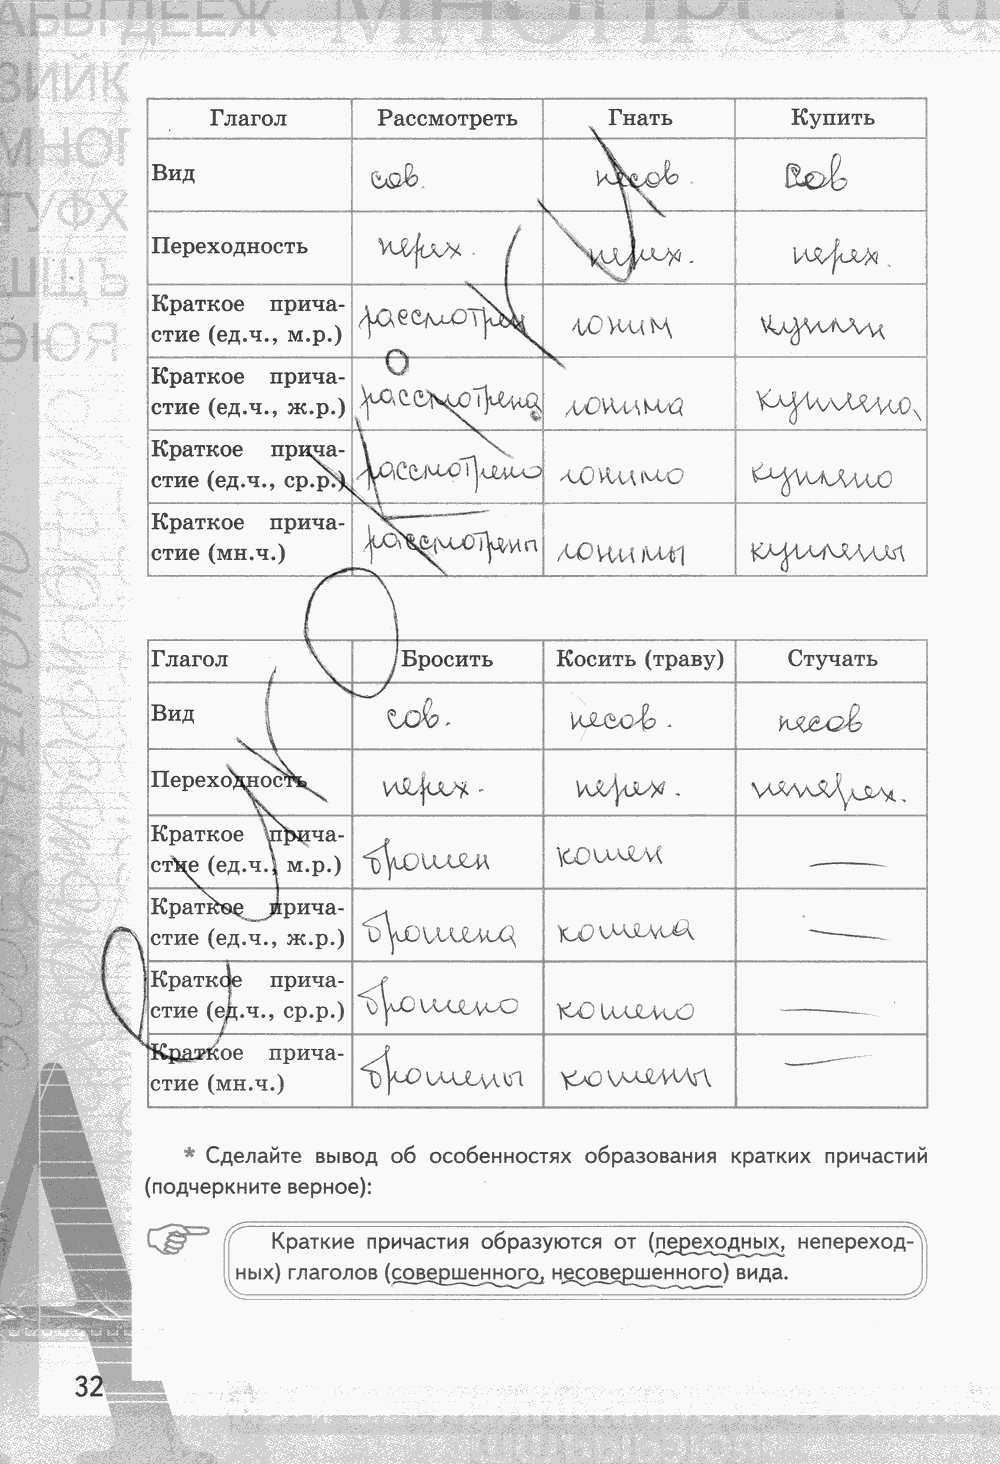 Глагол Рассмотреть Гнать Купить
Вид сов. несов. Сов
Переходность перех. перех. перех.
Краткое прича-
стие (ед.ч., м.р.) рассмотрен гоним куплен
Краткое прича-
стие (ед.ч., ж.р.) рассмотрена гонима куплена
Краткое прича-
стие (ед.ч., ср.р.) рассмотрено гонимо куплено
Краткое прича-
стие (мн.ч.) рассмотрены гонимы куплены
Глагол Бросить Косить (траву) Стучать
Вид сов. несов. несов
Переходность перех. перех. неперех.
Краткое прича-
стие (ед.ч., м.р.) брошен кошен —
Краткое прича-
стие (ед.ч., ж.р.) брошена кошена —
Краткое прича-
стие (ед.ч., ср.р.) брошено кошено —
Краткое прича-
стие (мн.ч.) брошены кошены —
* Сделайте вывод об особенностях образования кратких причастий
(подчеркните верное):
Краткие причастия образуются от (переходных, непереход-
ных) глаголов (совершенного, несовершенного) вида.
32